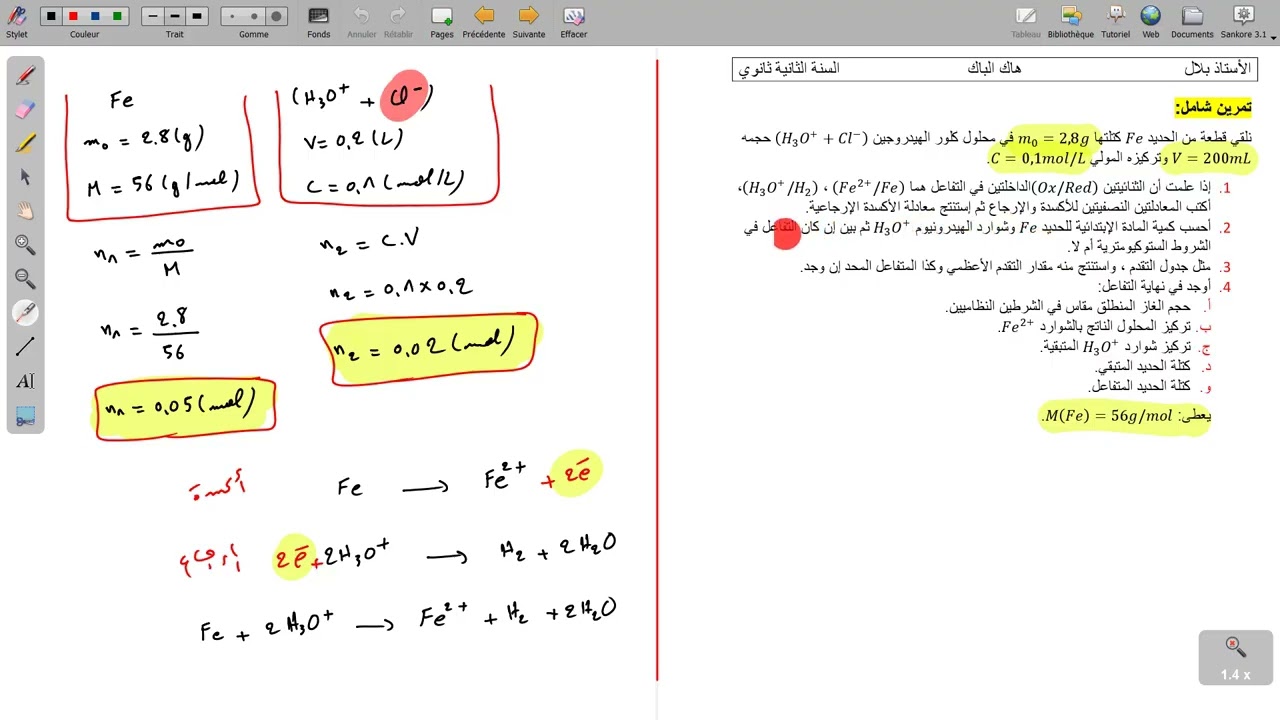 Stylet Couleur Trait Gomme Fonds Annuler Rétablir Pages Précédente Suivante Effacer Tableau Bibliothèque Tutoriel Web Documents Sankore 3.1
الأستاذ بلال هاك الباك السنة الثانية ثانوي
تمرين شامل:
نلقي قطعة من الحديد Fe كتلتها m₀ = 2,8g في محلول كلور الهيدروجين (H₃O⁺ + Cl⁻) حجمه
V = 200mL وتركيزه المولي C = 0,1mol/L.
1. إذا علمت أن الثنائيتين (Ox/Red) الداخلتين في التفاعل هما (Fe²⁺/Fe) ، (H₃O⁺/H₂)،
أكتب المعادلتين النصفيتين للأكسدة والإرجاع ثم إستنتج معادلة الأكسدة الإرجاعية.
2. أحسب كمية المادة الإبتدائية للحديد Fe وشوارد الهيدرونيوم H₃O⁺ ثم بين إن كان التفاعل في
الشروط الستوكيومترية أم لا.
3. مثل جدول التقدم ، واستنتج منه مقدار التقدم الأعظمي وكذا المتفاعل المحد إن وجد.
4. أوجد في نهاية التفاعل:
أ. حجم الغاز المنطلق مقاس في الشرطين النظاميين.
ب. تركيز المحلول الناتج بالشوارد Fe²⁺.
ج. تركيز شوارد H₃O⁺ المتبقية.
د. كتلة الحديد المتبقي.
و. كتلة الحديد المتفاعل.
يعطى: M(Fe) = 56g/mol.
Fe
m₀ = 2.8 (g)
M = 56 (g/mol)
(H₃O⁺ + Cl⁻)
V = 0.2 (L)
C = 0.1 (mol/L)
n₁ = m₀/M
n₁ = 2.8/56
n₁ = 0.05 (mol)
n₂ = C.V
n₂ = 0.1 × 0.2
n₂ = 0.02 (mol)
أكسدة Fe → Fe²⁺ + 2e⁻
إرجاع 2e⁻ + 2H₃O⁺ → H₂ + 2H₂O
Fe + 2H₃O⁺ → Fe²⁺ + H₂ + 2H₂O
1.4 x